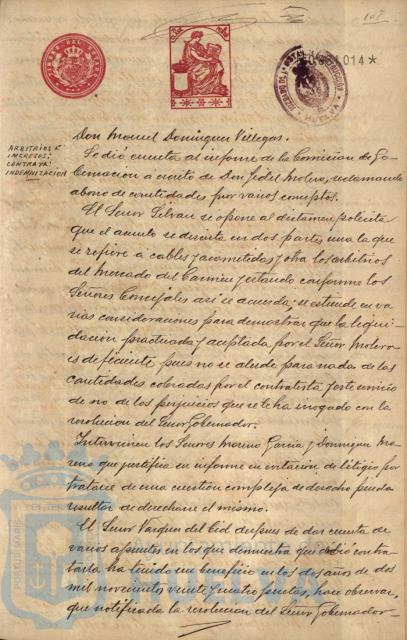 107
TIMBRE DEL ESTADO
014*
HUELVA
ARBITRIOS E
INGRESOS;
CONTRATA
INDEMNIZACIÓN
Don Manuel Domínguez Villegas.
Se dió cuenta al informe de la Comisión de Go-
bernación a escrito de Don Fidel Molero, reclamando
abono de cantidades por varios conceptos.
El Señor se opone al dictamen y solicita
que el asunto se discuta en dos partes una la que
se refiere a cables y acometidas y otra los arbitrios
del Mercado del Carmen y estando conforme los
Señores Concejales así se acuerda; se extiende en va-
rias consideraciones para demostrar que la liqui-
dación practicada y aceptada por el Señor Molero
es deficiente pues no se alude para nada de las
cantidades cobradas por el contratista y este servicio
de no de los perjuicios que se le ha irrogado con la
resolución del Señor Gobernador.
Intervienen los Señores Moreno García y Domínguez Mo-
reno que justifica su informe en evitación de litigio por
tratarse de una cuestión compleja de derecho pueda
resultar de derecho en el mismo.
El Señor Vázquez del Cid después de dar cuenta de
varios apuntes en los que demuestra que dicho contra-
tista ha tenido un beneficio en los dos años de dos
mil novecientos veinte y cuatro pesetas, hace observar,
que notificada la resolución del Señor Gobernador